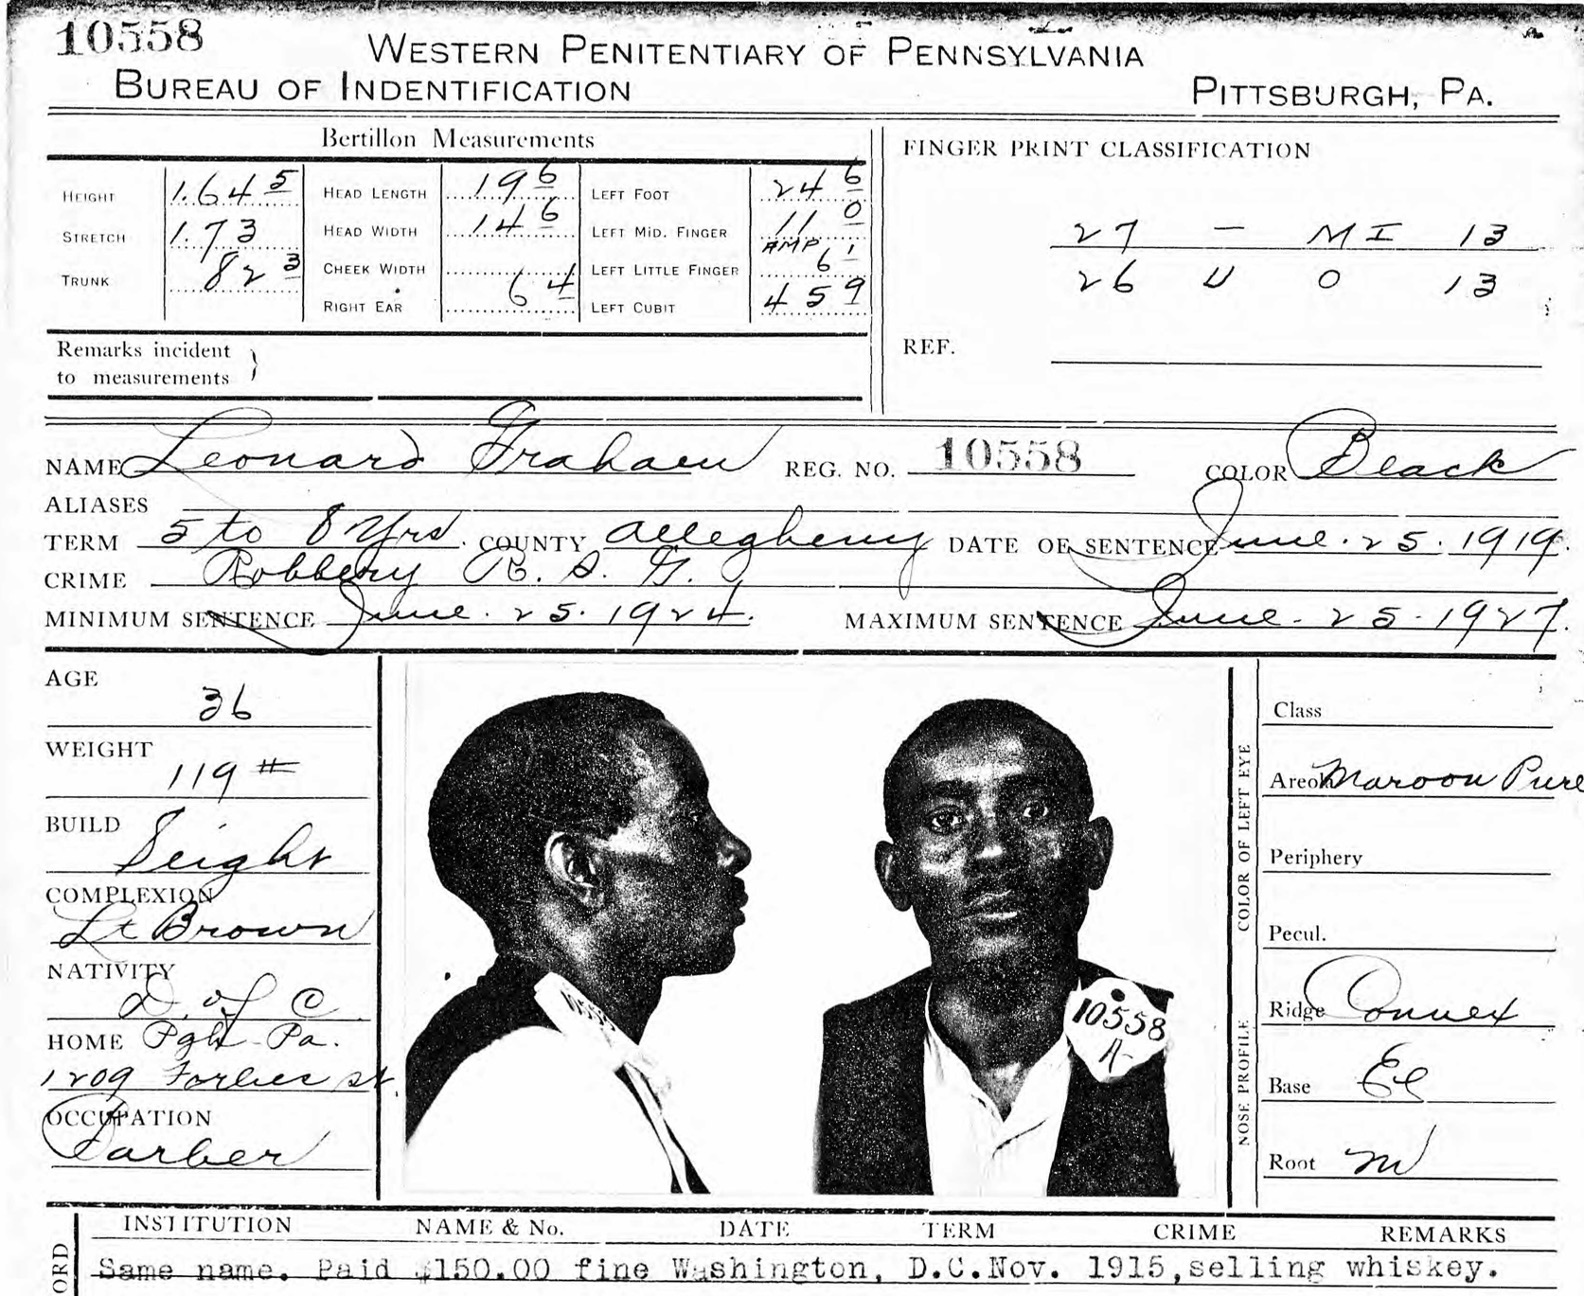 10558
WESTERN PENITENTIARY OF PENNSYLVANIA
BUREAU OF INDENTIFICATION PITTSBURGH, PA.
Bertillon Measurements
HEIGHT 1.64 5 HEAD LENGTH 19 6 LEFT FOOT 24 6
STRETCH 1.73 HEAD WIDTH 14 6 LEFT MID. FINGER 11 0
AMP
TRUNK 82 3 CHEEK WIDTH LEFT LITTLE FINGER 6 1
RIGHT EAR 6 4 LEFT CUBIT 45 9
FINGER PRINT CLASSIFICATION
27 — M I 13
26 U O 13
REF.
Remarks incident
to measurements }
NAME Leonard Graham REG. NO. 10558 COLOR Black
ALIASES
TERM 5 to 8 Yrs. COUNTY Allegheny DATE OF SENTENCE June. 25. 1919.
CRIME Robbery R. S. G.
MINIMUM SENTENCE June. 25. 1924. MAXIMUM SENTENCE June - 25 - 1927.
AGE
36
WEIGHT
119 #
BUILD
Slight
COMPLEXION
Lt Brown
NATIVITY
D. of C.
HOME Pgh Pa.
1209 Forbes st.
OCCUPATION
Barber
10558
A-
COLOR OF LEFT EYE
Class
Areola Maroon Pure
Periphery
Pecul.
NOSE PROFILE
Ridge Convex
Base El
Root M
INSTITUTION NAME & No. DATE TERM CRIME REMARKS
ORD
Same name. Paid $150.00 fine Washington, D.C.Nov. 1915,selling whiskey.